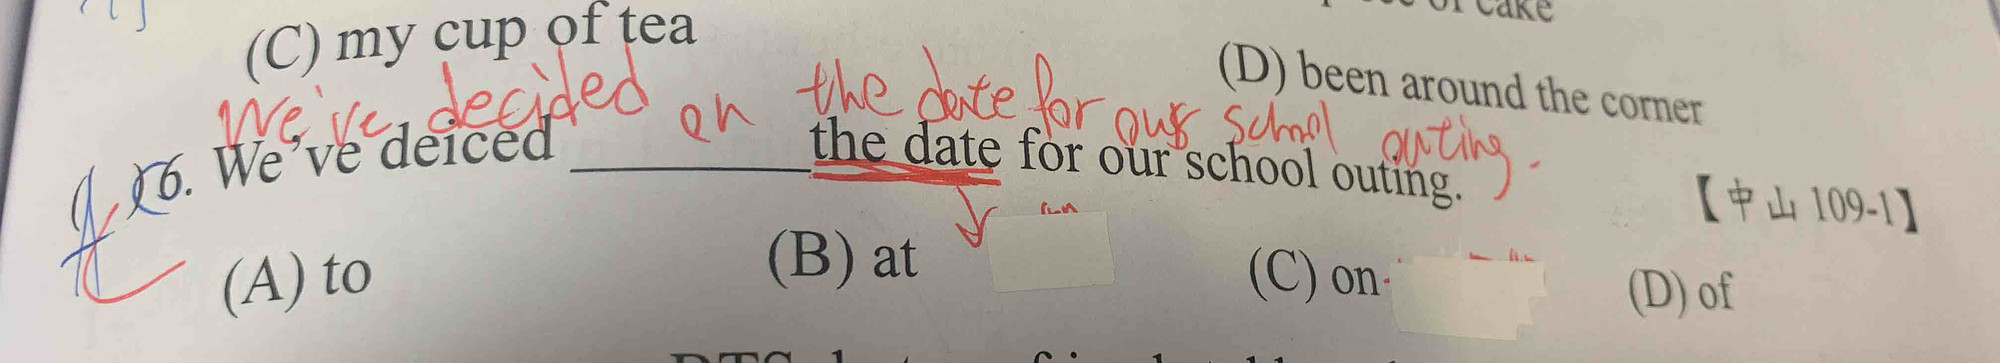 (C) my cup of tea
cake
(D) been around the corner
We've decided on the date for our school outing.
16. We've deiced ________ the date for our school outing.
【中山 109-1】
(A) to (B) at (C) on (D) of